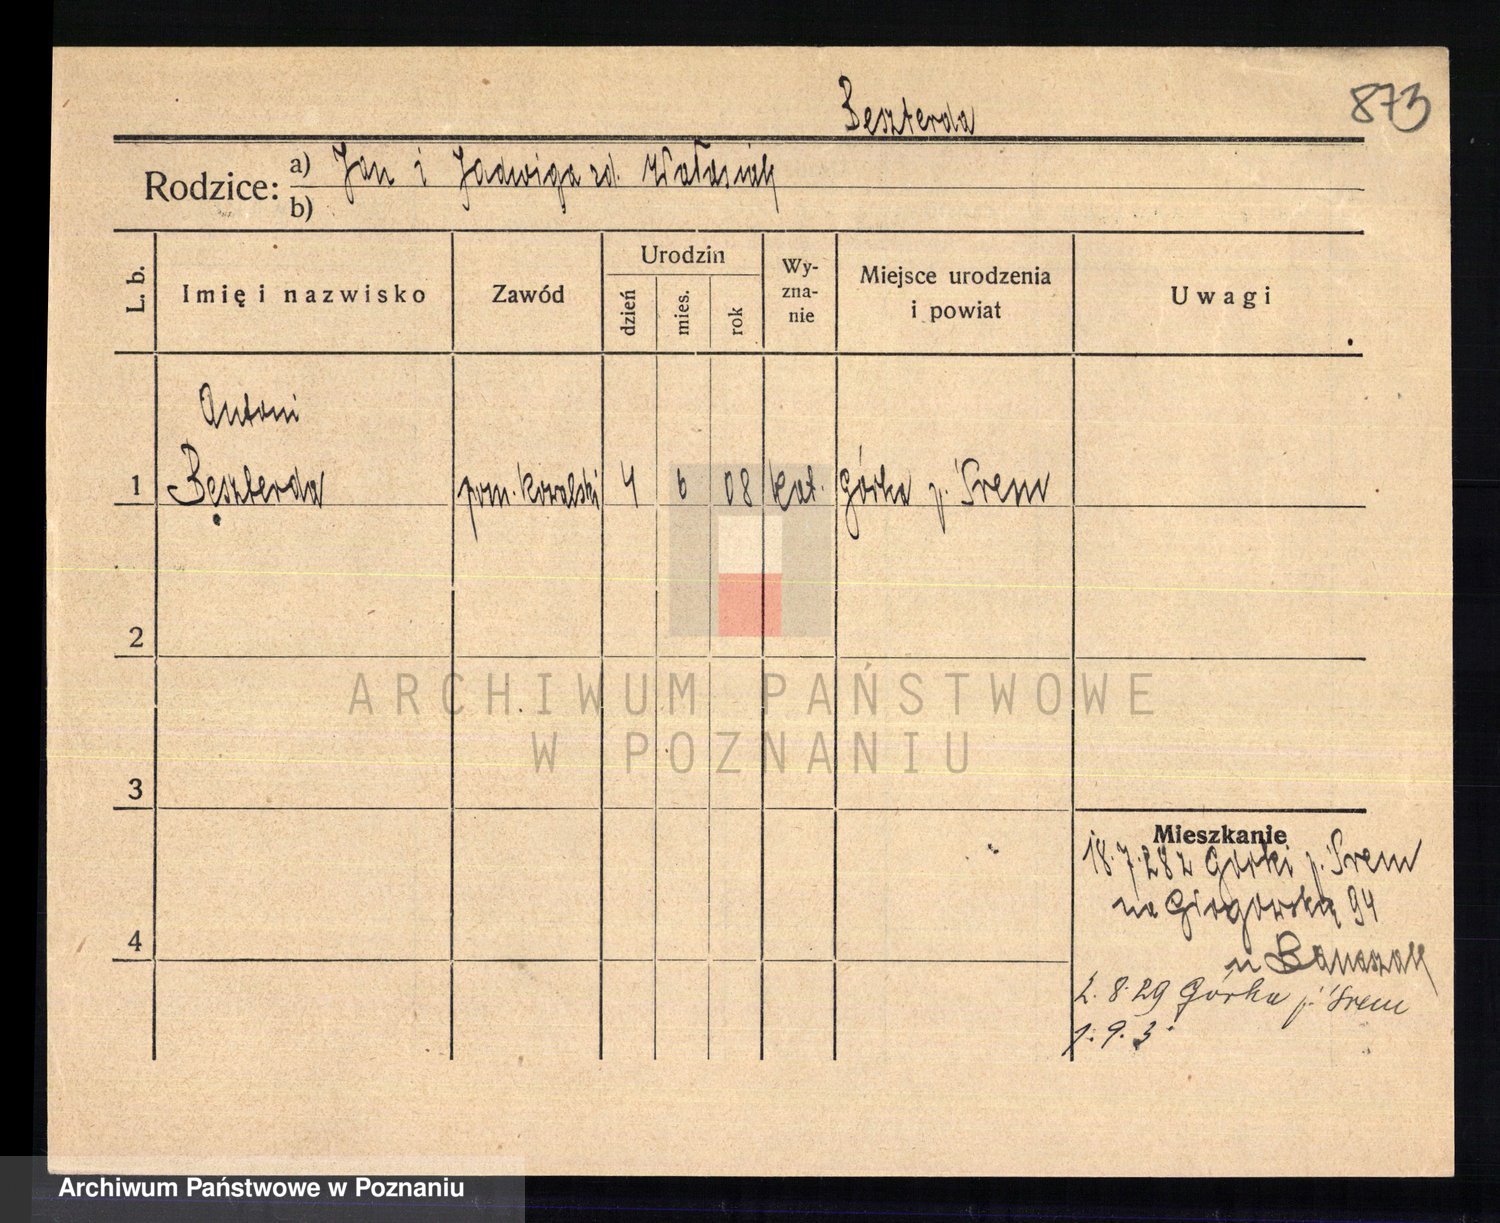 Beszterda
873
Rodzice: a) Jan i Jadwiga zd. Wałasiak
b)
L. b.
Imię i nazwisko
Zawód
Urodzin
dzień
mies.
rok
Wy-
zna-
nie
Miejsce urodzenia
i powiat
Uwagi
Antoni
1 Beszterda pom. kowalski 4 6 08 kat. Górka p. Śrem
2
3
4
ARCHIWUM PAŃSTWOWE
W POZNANIU
Mieszkanie
18.7.28 z Górki p. Śrem
na 94
u Banaszak
2.8.29 Górka p. Śrem
1.9.3
Archiwum Państwowe w Poznaniu